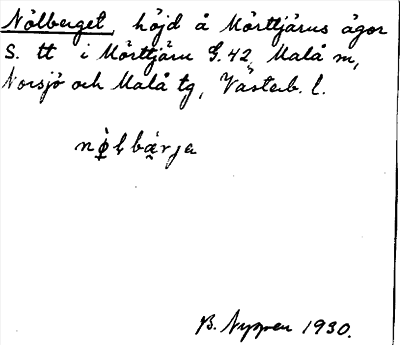 Nölberget, höjd å Mörttjärns ägor
S. tt i Mörttjärn G.42, Malå m,
Norsjö och Malå tg, Västerb. l.
B. Nyman 1930.